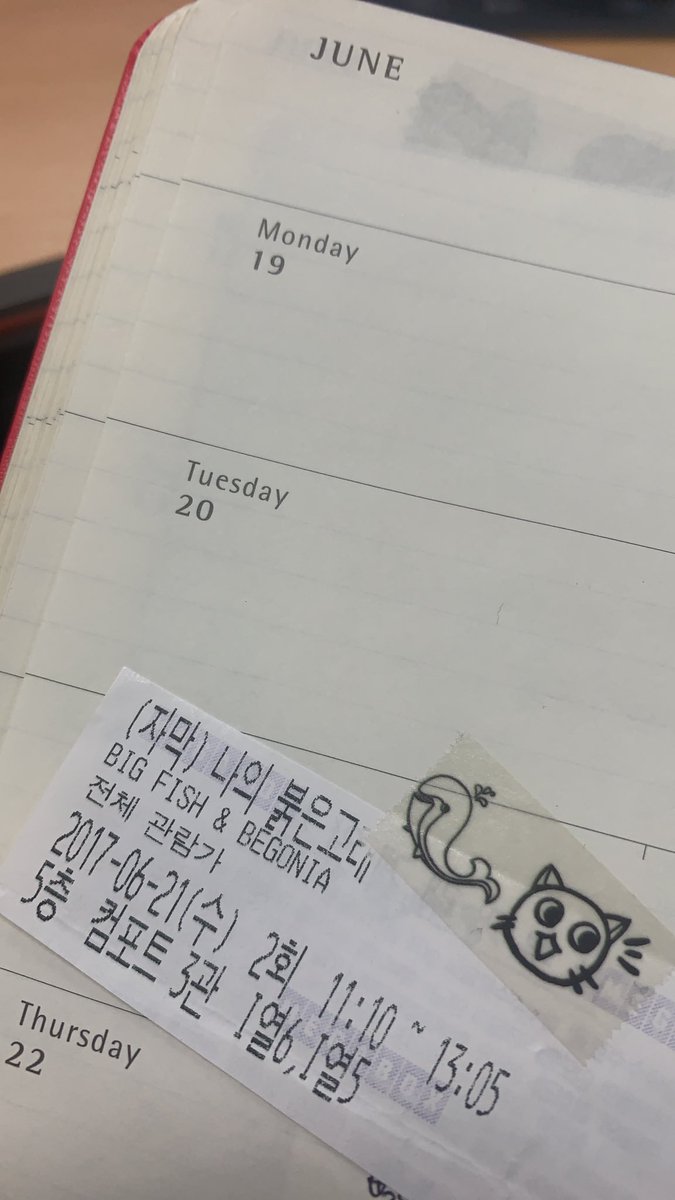 JUNE
Monday
19
Tuesday
20
(자막) 나의 붉은고래
BIG FISH & BEGONIA
전체 관람가
2017-06-21(수) 2회 11:10 ~ 13:05
5층 컴포트 3관 I열6,I열5
Thursday
22